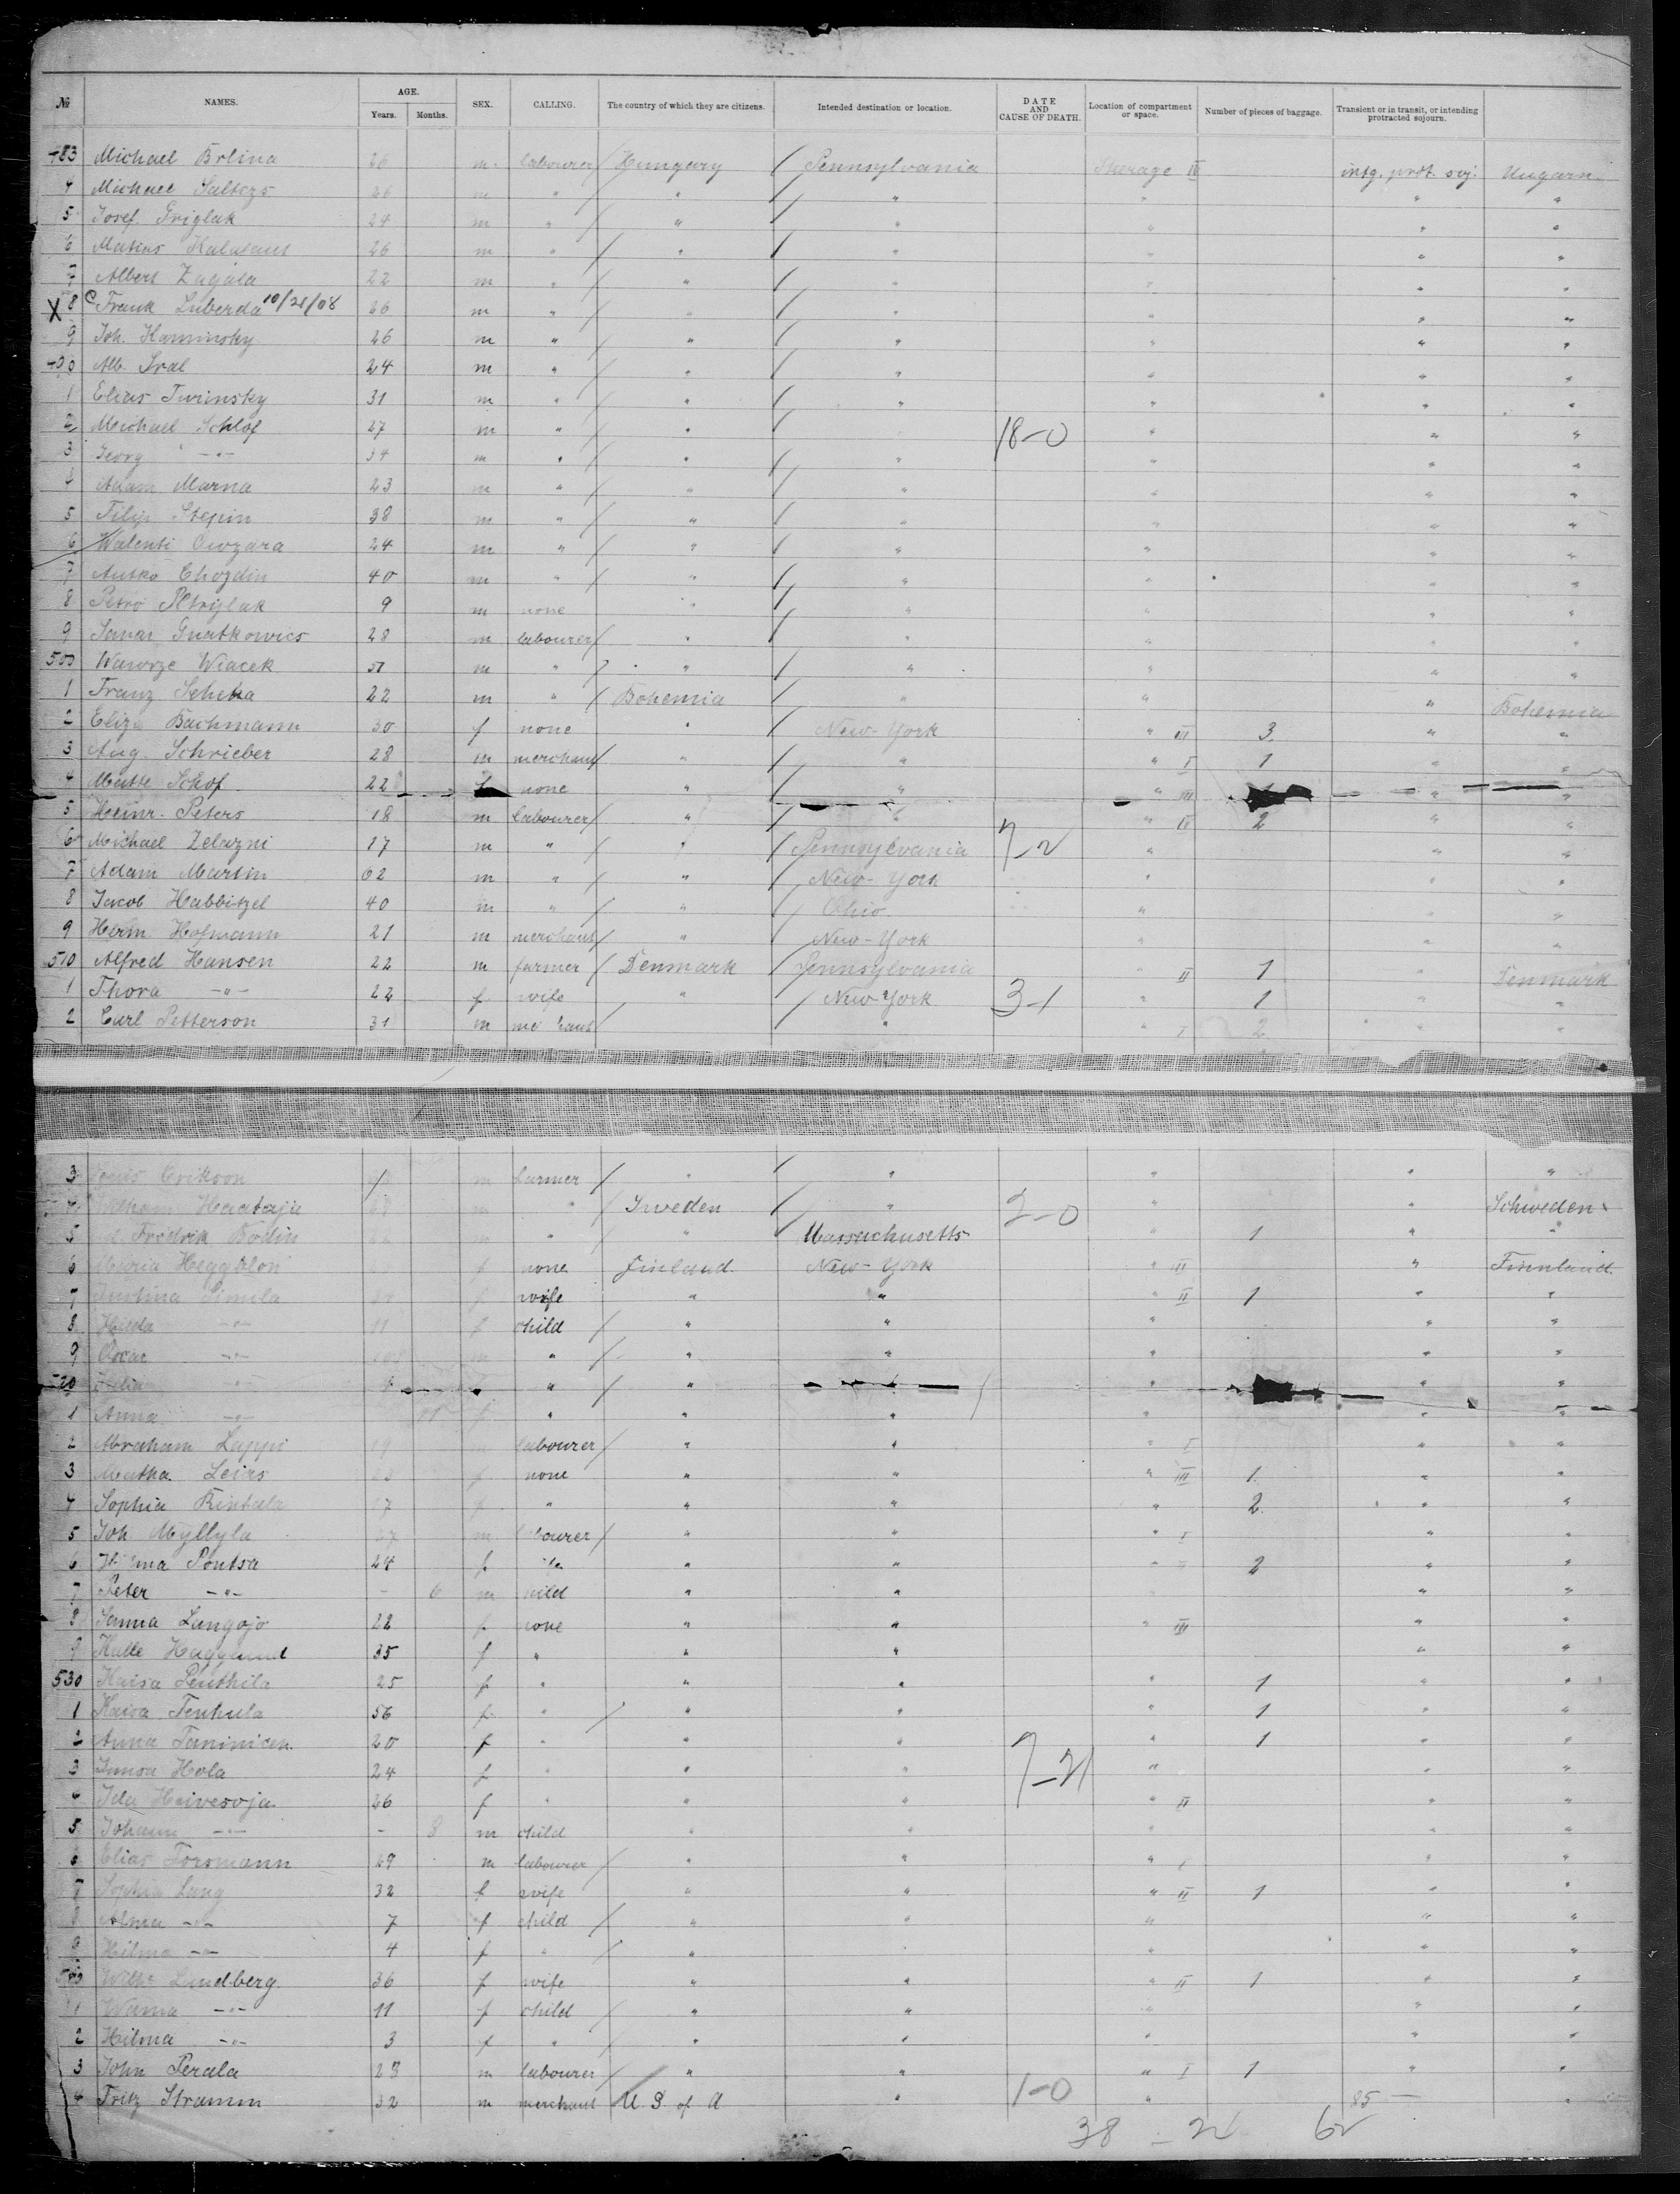 № NAMES. AGE. Years. Months. SEX. CALLING. The country of which they are citizens. Intended destination or location. DATE AND CAUSE OF DEATH. Location of compartment or space. Number of pieces of baggage. Transient or in transit, or intending protracted sojourn.
483 Michael Brlina 26 m. labourer / Hungary / Pennsylvania Sterage IV intg. prot. soj. Ungarn
4 Michael 26 m " / " / " " " "
5 Josef Griglak 24 m " / " / " " " "
6 Matias 26 m " / " / " " " "
7 Albert Zagata 22 m " / " / " " " "
X 8 c Frank Luberda 10/21/08 26 m " / " / " " " "
9 Joh. Kaminsky 26 m " / " / " " " "
490 Alb. Sral 24 m " / " / " " " "
1 Elias 31 m " / " / " " " "
2 Michael Schlof 27 m " / " / 18-0 " " "
3 Georg -"- 34 m " / " / " " " "
4 Adam Marna 23 m " / " / " " " "
5 Filip Stepin 38 m " / " / " " " "
6 Walenti 24 m " / " / " " " "
7 Antko 40 m " / " / " " " "
8 Petro Petrylak 9 m none " / " " " "
9 Gnatkowics 28 m labourer / " / " " " "
500 Wawrze Wiacek m " / " / " " " "
1 Franz 22 m " / Bohemia / " " " Bohemia
2 Eliza Bachmann 30 f none " / New-York " III 3 " "
3 Aug. Schrieber 28 m merchant / " / " " I 1 " "
4 Schof 22 none " / " " III " "
5 Heinr. Peters 18 m labourer / " / " " IV 2 " "
6 Michael Zelazni 17 m " / " / Pennsylvania 7-2 " " "
7 Adam Martin 62 m " / " / New-York " " "
8 Jacob Habbitzel 40 m " / " / Ohio " " "
9 Herm. Hofmann 21 m merchant / " / New-York " " "
510 Alfred Hansen 22 m farmer / Denmark / Pennsylvania " II 1 " Denmark
1 Thora -"- 22 f wife " / New-York 3-1 " 1 " "
2 Carl Petterson 31 m / " " I 2 " "
3 Erikson m farmer / " / " " " "
4 Haataja m " / Sweden / " 2-0 " " Schweden
5 Fredrik Bodin m " / " Massachusetts " 1 " "
6 Maria f none Finland New-York " III " Finnland
7 Justina Simula f wife " " " II 1 " "
8 Hilda -"- 11 f child / " " " " "
9 Oscar -"- m " / " " " " "
520 -"- " / " " " "
1 Anna -"- 11 f " " " " " "
2 Abraham Lappi 19 m labourer / " " " I " "
3 Leias f none " " " III 1 " "
4 Sophia Rintala 17 f " " " " 2 " "
5 Joh. Myllyla 27 m labourer / " " " I " "
6 Pontsa 24 f " " " II 2 " "
7 Peter -"- - 6 m child " " " "
8 Sanna Langojo 22 f none " " " III " "
9 Kalle Hagglund 35 f " " " " "
530 Kaisa Penthila 25 f " " " " 1 " "
1 Kaisa Tenhula 56 f " / " " " 1 " "
2 Anna 20 f " " " " 1 " "
3 Hola 24 f " " " 7-21 " " "
4 Ida 26 f " " " " II " "
5 Johann -"- - 8 m child " " " " "
6 Elias Forsmann 29 m labourer / " " " I " "
7 Sophia Lang 32 f wife " " " II 1 " "
8 Alma -"- 7 f child / " " " " "
9 Hilma -"- 4 f " / " " " " "
540 Lindberg 36 f wife " " " II 1 " "
1 -"- 11 f child / " " " " "
2 Hilma -"- 3 f " / " " " " "
3 John Perala 23 m labourer / " " " I 1 " "
4 Fritz Stramm 32 m merchant / U. S. of A " 1-0 " 85 - "
38 - 24 62